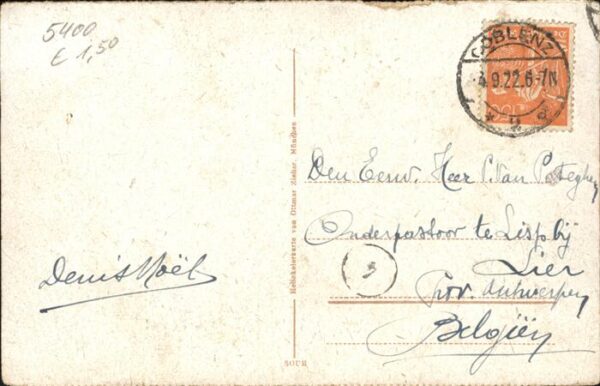 5400
£ 1,50
COBLENZ
4.9.22.6-7N
Den Eerw. Heer P. Van Poteghem
Onderpastoor te Lisp bij
Lier
Prov. Antwerpen
België
3
Denis Noël
Heliokolorkarte von Ottmar Zieher, München